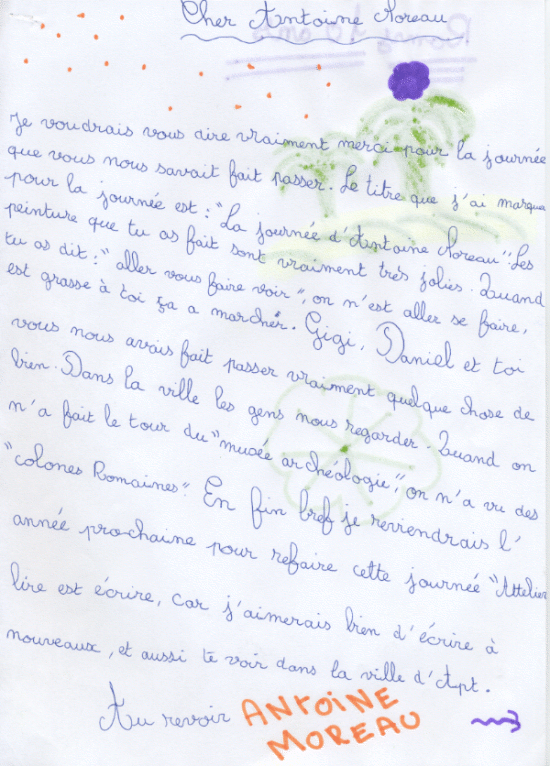 Cher Antoine Moreau
Je voudrais vous dire vraiment merci pour la journée
que vous nous savait fait passer. Le titre que j'ai marque
pour la journée est : "La journée d'Antoine Moreau". Les
peinture que tu as fait sont vraiment très jolies. Quand
tu as dit : "aller vous faire voir", on n'est aller se faire,
est grasse à toi ça a marcher. Gigi, Daniel et toi
vous nous avais fait passer vraiment quelque chose de
bien. Dans la ville les gens nous regarder. Quand on
n'a fait le tour du "musée archéologie", on n'a vu des
"colones Romaines". En fin bref je reviendrais l'
année prochaine pour refaire cette journée "Attelier
lire est écrire, car j'aimerais bien d'écrire à
nouveaux, et aussi te voir dans la ville d'Apt.
Au revoir ANTOINE
MOREAU